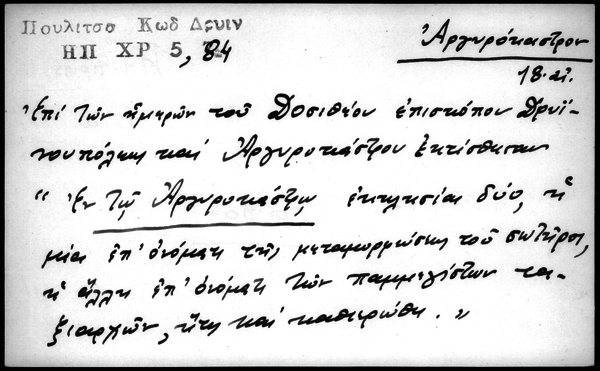 Πουλιτσα Κωδ Δρυιν
ΗΠ ΧΡ 5, 84
Ἀργυρόκαστρον
18 αἰ.
Ἐπί τῶν ἡμερῶν τοῦ Δοσιθέου ἐπισκόπου Δρυϊ-
νουπόλεως καί Ἀργυροκάστρου ἐκτίσθησαν
"ἐν τῷ Ἀργυροκάστρῳ ἐκκλησίαι δύο, ἡ
μία ἐπ' ὀνόματι τῆς μεταμορφώσεως τοῦ σωτῆρος,
ἡ ἄλλη ἐπ' ὀνόματι τῶν παμμεγίστων τα-
ξιαρχῶν, ἥτις καί καθιερώθη."